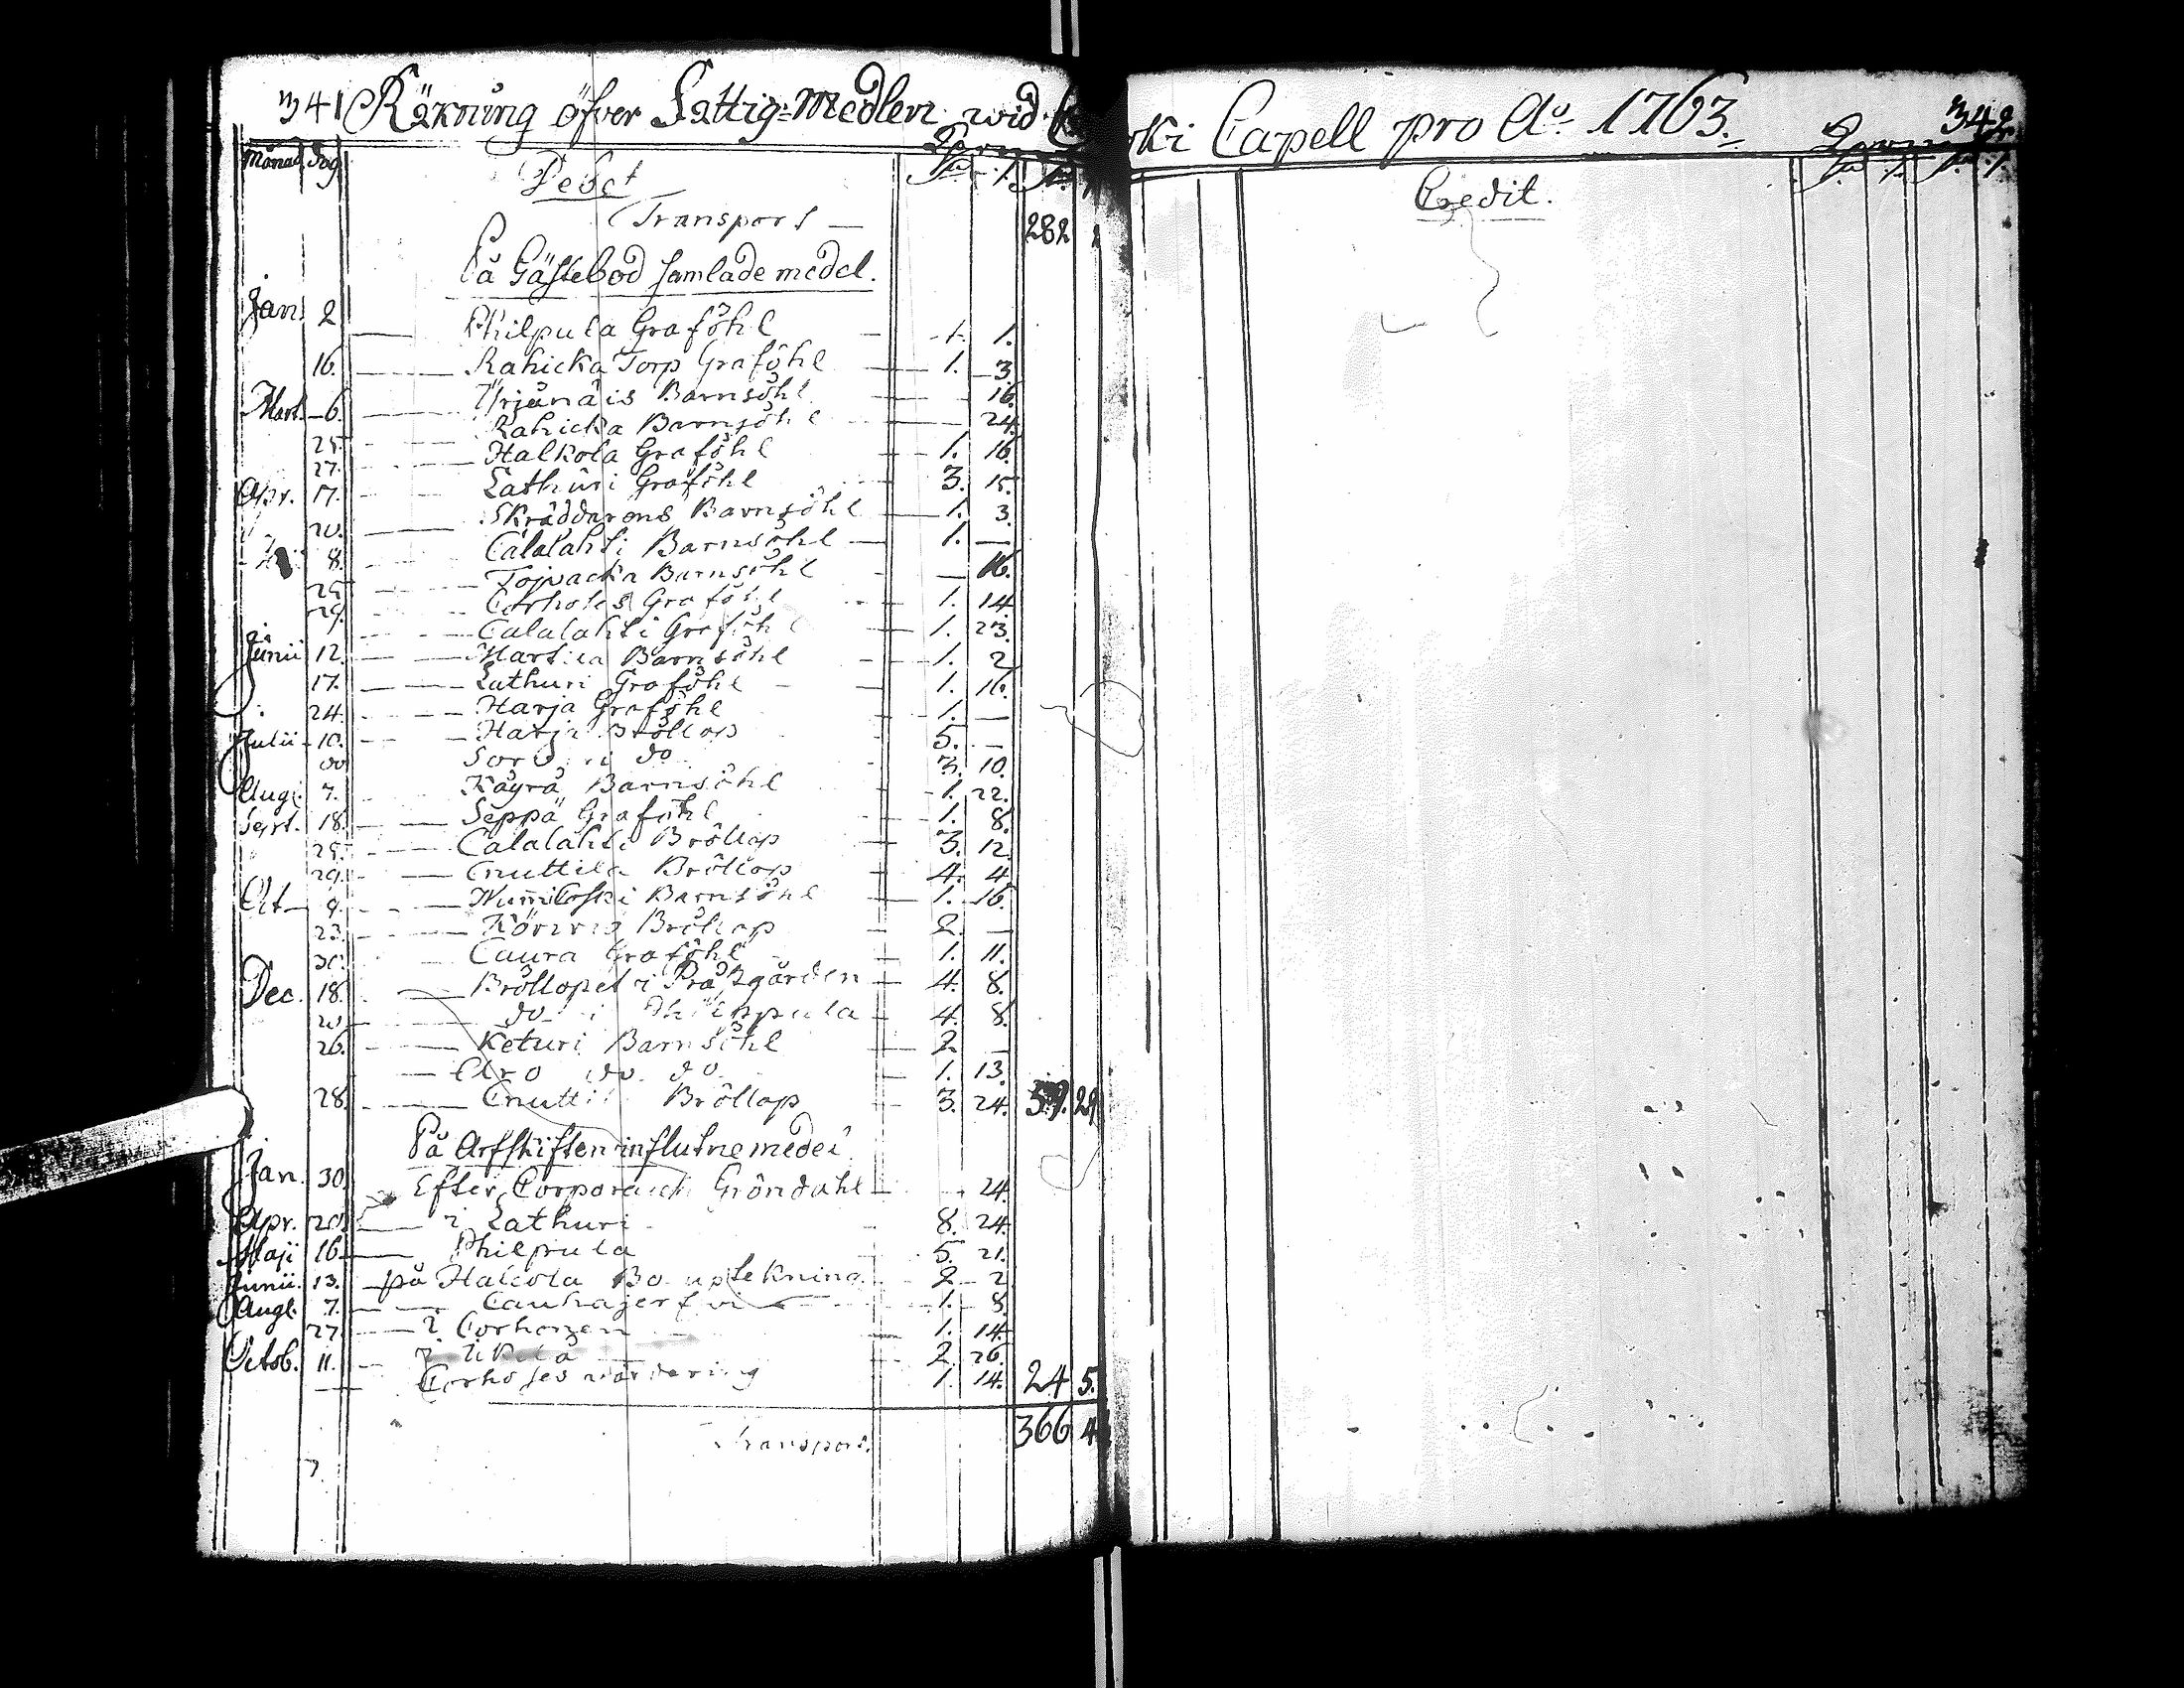 341 Räkning öfver Fattig-Medlen wid
Månad. Dag. Debet
Transport — 282
På Gästebod samlade medel.
Jan. 2 Philpula Graföhl 1. 1.
16. Rahicka Torp Graföhl 1. 3.
Mart. 6. Yrjänäis Barnsöhl 16.
25. Rahicka Barnsöhl 24.
27. Halkola Graföhl 1. 16.
Apr. 17. Lathuri Graföhl 3. 15.
20. Skräddarens Barnsöhl 1. 3.
8. Calalahti Barnsöhl 1. —
25. Tojvacka Barnsöhl — 16.
29. Corhoses Graföhl 1. 14.
Calalahti Graföhl 1. 23.
Junii 12. Martila Barnsöhl 1. 2.
17. Lathuri Graföhl 1. 16.
24. Harja Graföhl 1. —
Julii 10. Harja Bröllop 5. —
do do 3. 10.
Aug. 7. Käyrä Barnsöhl 1. 22.
Sept. 18. Seppä Graföhl 1. 8.
25. Calalahti Bröllop 3. 12.
29. Cnuttila Bröllop 4. 4.
Oct. 9. Barnsöhl 1. 16.
23. Bröllop 2. —
30. Caura Graföhl 1. 11.
Dec. 18. Bröllopet i Prästgården 4. 8.
do i 4. 8.
26. Keturi Barnsöhl 2 —
do do 1. 13.
28. Cnuttila Bröllop 3. 24. 59. 29.
På Arfskiften influtne medel
Jan. 30. Efter Corporalen Gröndahl 24.
Apr. 20. i Lathuri 8. 24.
Maji 16. Philpula 5. 21.
Junii. 13. på Halcola Bo uptekning 2 2
Aug. 7. 1. 8.
27. i Corhosen 1. 14.
Octob. 11. i 2. 26.
Corhoses värdering 1. 14. 24 5.
Transport. 366 4
ki Capell pro Ao 1763. 342
Credit.